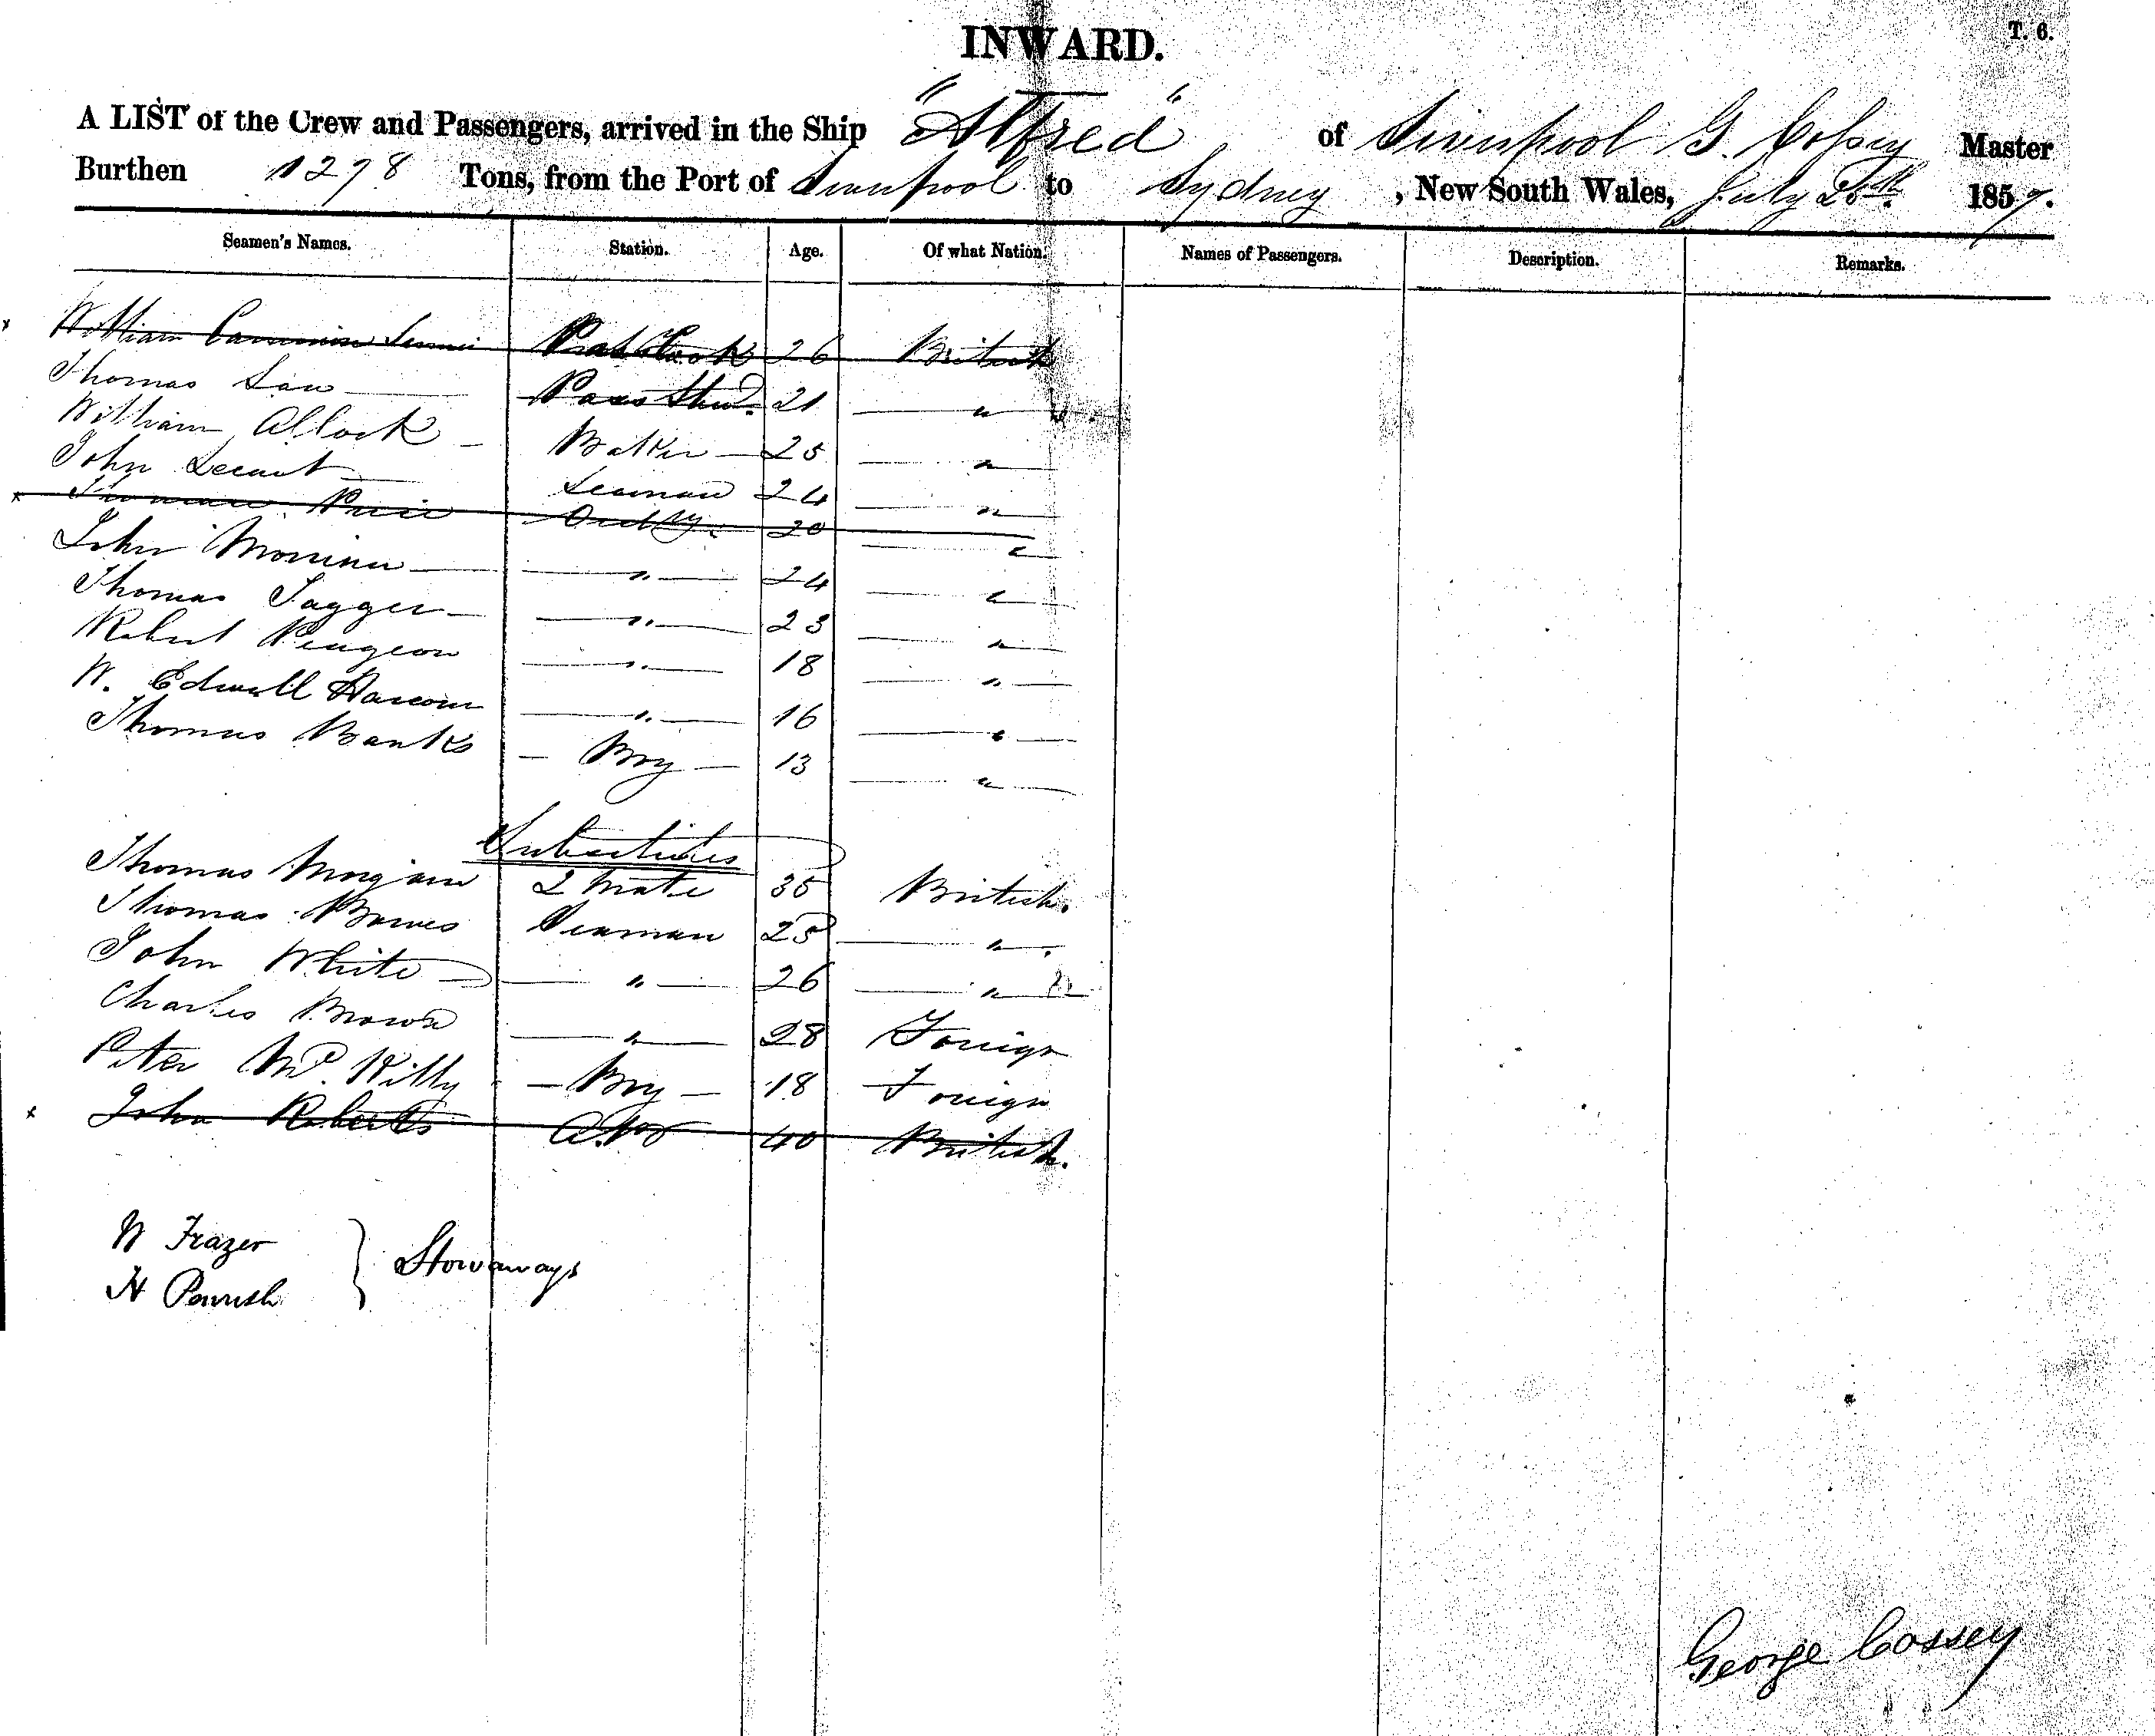 INWARD.
T. 6.
A LIST of the Crew and Passengers, arrived in the Ship "Alfred" of Liverpool G. Cossey Master
Burthen 1298 Tons, from the Port of Liverpool to Sydney, New South Wales, July 1857.
Seamen's Names. Station. Age. Of what Nation. Names of Passengers. Description. Remarks.
x William Cook 26 British
Thomas Law Pass Stwd. 21 "
William Allock Baker 25 "
John Seaman 24 "
x Price Ordy. 20 "
John " 24 "
Thomas Jagger " 23 "
Robert " 18 "
W. " 16 "
Thomas Banks Boy 13 "
Substitutes
Thomas Morgan 2 Mate 35 British.
Thomas Seaman 25 "
John White " 26 "
Charles Brown " 28 Foreign
Peter Boy 18 Foreign
x John Roberts 40 British.
W Frazer
Stowaways
H Parrish
George Cossey